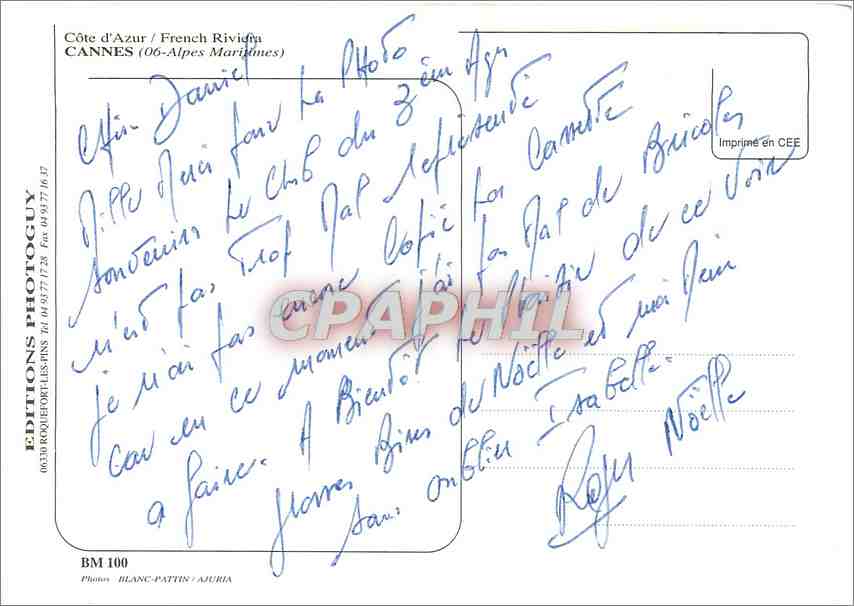 Côte d'Azur / French Riviera
CANNES (06-Alpes Maritimes)
Imprimé en CEE
Cher Daniel
Mille Merci pour la Photo
souvenirs Le Club du 3èm Age
n'est pas Trop Mal représenté
je n'ai pas encore Copié La Cassette
car en ce moment j'ai pas Mal de Bricoles
a faire. A Bientôt Le Plaisir de ce Voir
grosses Bises de Noëlle et moi Mem
sans oublier Isabelle.
Roger Noëlle
EDITIONS PHOTOGUY
06330 ROQUEFORT-LES-PINS Tel 04 93 77 17 28 Fax 04 93 77 16 37
CPAPHIL
BM 100
Photos BLANC-PATTIN / AJURIA